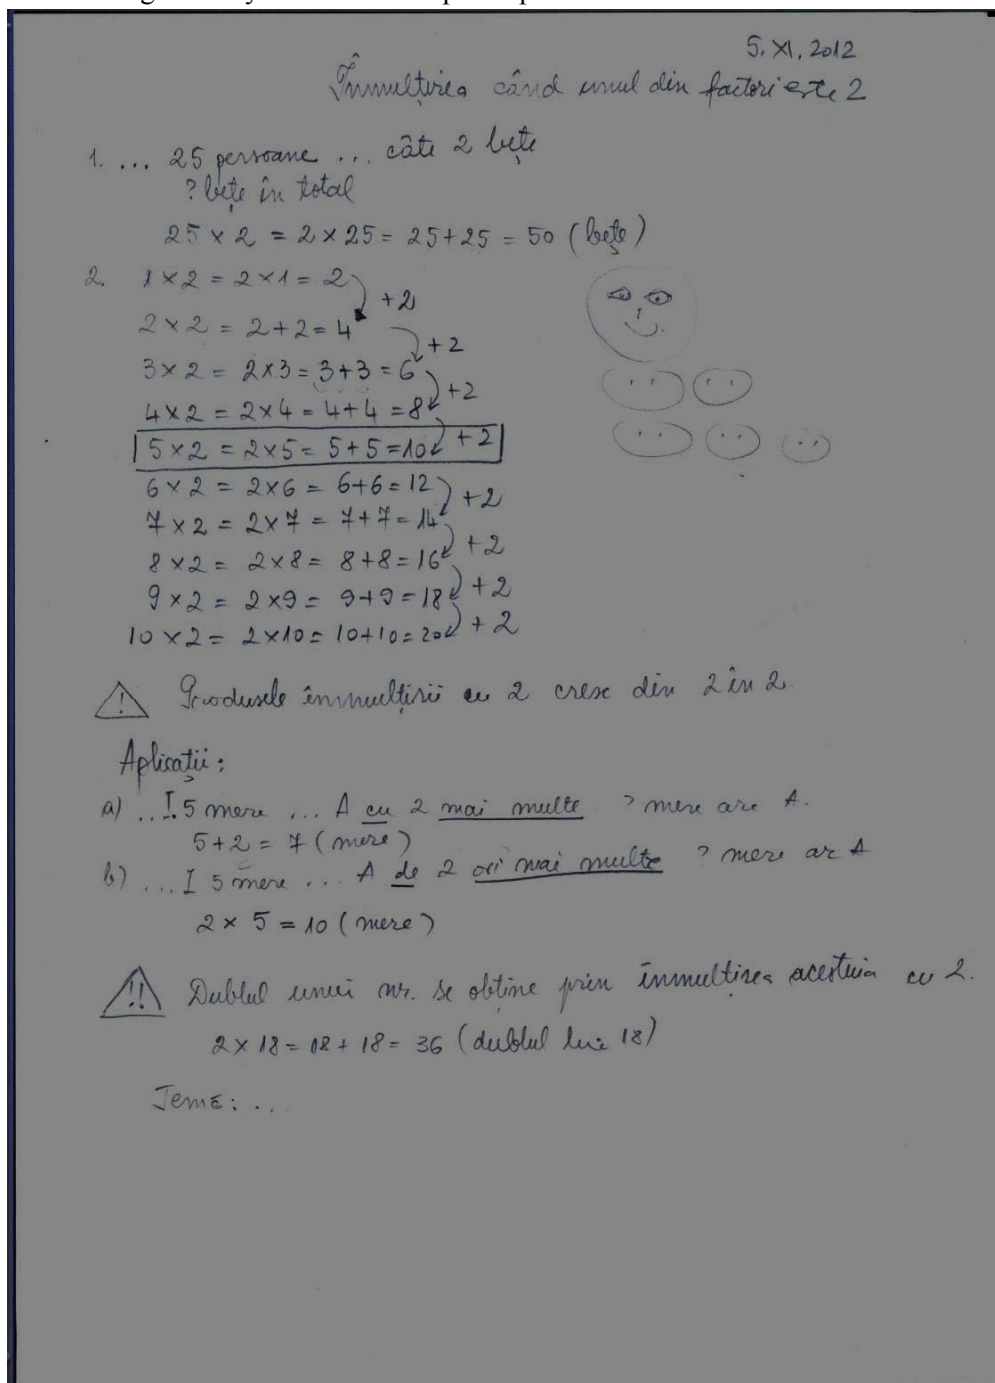 5. XI. 2012
Înmulțirea când unul din factori este 2
1. ... 25 persoane ... câte 2 bețe
? bețe în total
25 × 2 = 2 × 25 = 25+25 = 50 (bețe)
2. 1 × 2 = 2 × 1 = 2
+2
2 × 2 = 2 + 2 = 4
+2
3 × 2 = 2×3 = 3+3 = 6
+2
4 × 2 = 2 × 4 = 4+4 = 8
5 × 2 = 2×5 = 5+5 = 10 +2
6 × 2 = 2×6 = 6+6 = 12
+2
7 × 2 = 2×7 = 7+7 = 14
+2
8 × 2 = 2×8 = 8+8 = 16
+2
9 × 2 = 2×9 = 9+9 = 18
+2
10 × 2 = 2×10 = 10+10 = 20
! Produsele înmulțirii cu 2 cresc din 2 în 2.
Aplicații:
a) ... I. 5 mere ... A cu 2 mai multe ? mere are A.
5+2 = 7 (mere)
b) ... I 5 mere ... A de 2 ori mai multe ? mere ar A
2 × 5 = 10 (mere)
!! Dublul unui nr. se obține prin înmulțirea acestuia cu 2.
2 × 18 = 18 + 18 = 36 (dublul lui 18)
Temă: ...